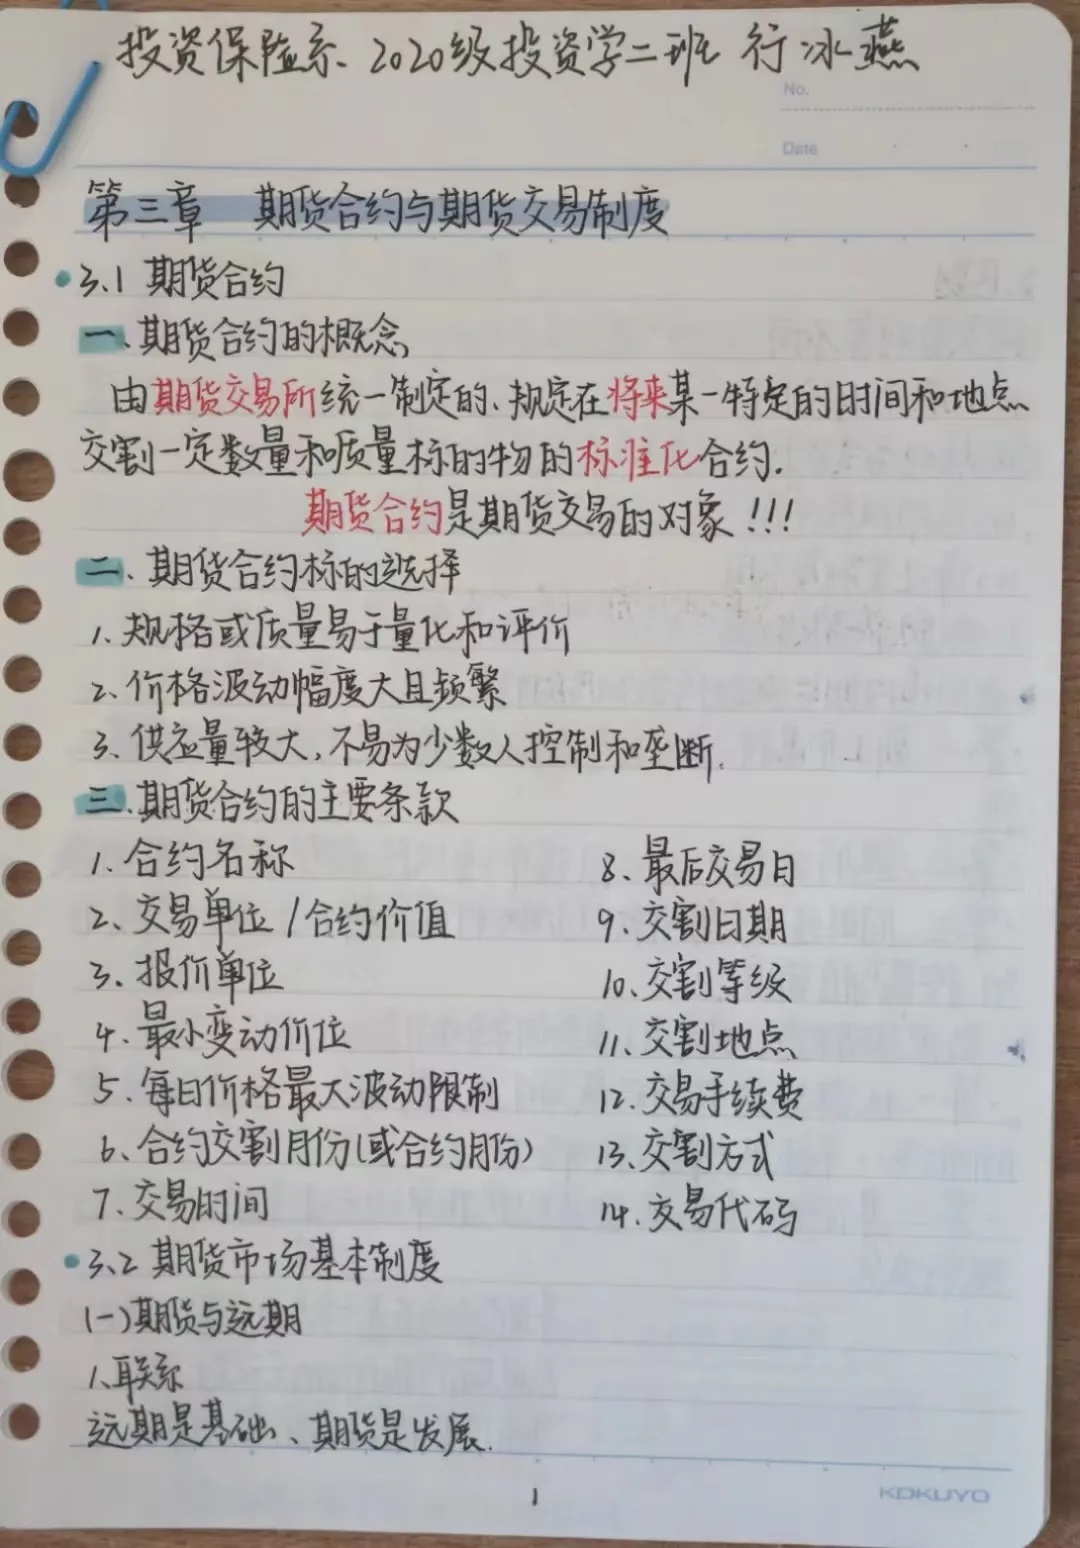 投资保险系、2020级投资学二班 行冰燕
No.
Date
第三章 期货合约与期货交易制度
3.1 期货合约
一、期货合约的概念
由期货交易所统一制定的、规定在将来某一特定的时间和地点
交割一定数量和质量标的物的标准化合约.
期货合约是期货交易的对象!!!
二、期货合约标的选择
1.规格或质量易于量化和评价
2.价格波动幅度大且频繁
3.供应量较大,不易为少数人控制和垄断.
三.期货合约的主要条款
1.合约名称
2.交易单位/合约价值
3.报价单位
4.最小变动价位
5.每日价格最大波动限制
6.合约交割月份(或合约月份)
7.交易时间
8.最后交易日
9.交割日期
10.交割等级
11.交割地点
12.交易手续费
13.交割方式
14.交易代码
3.2 期货市场基本制度
(一)期货与远期
1.联系
远期是基础、期货是发展.
1
KOKUYO